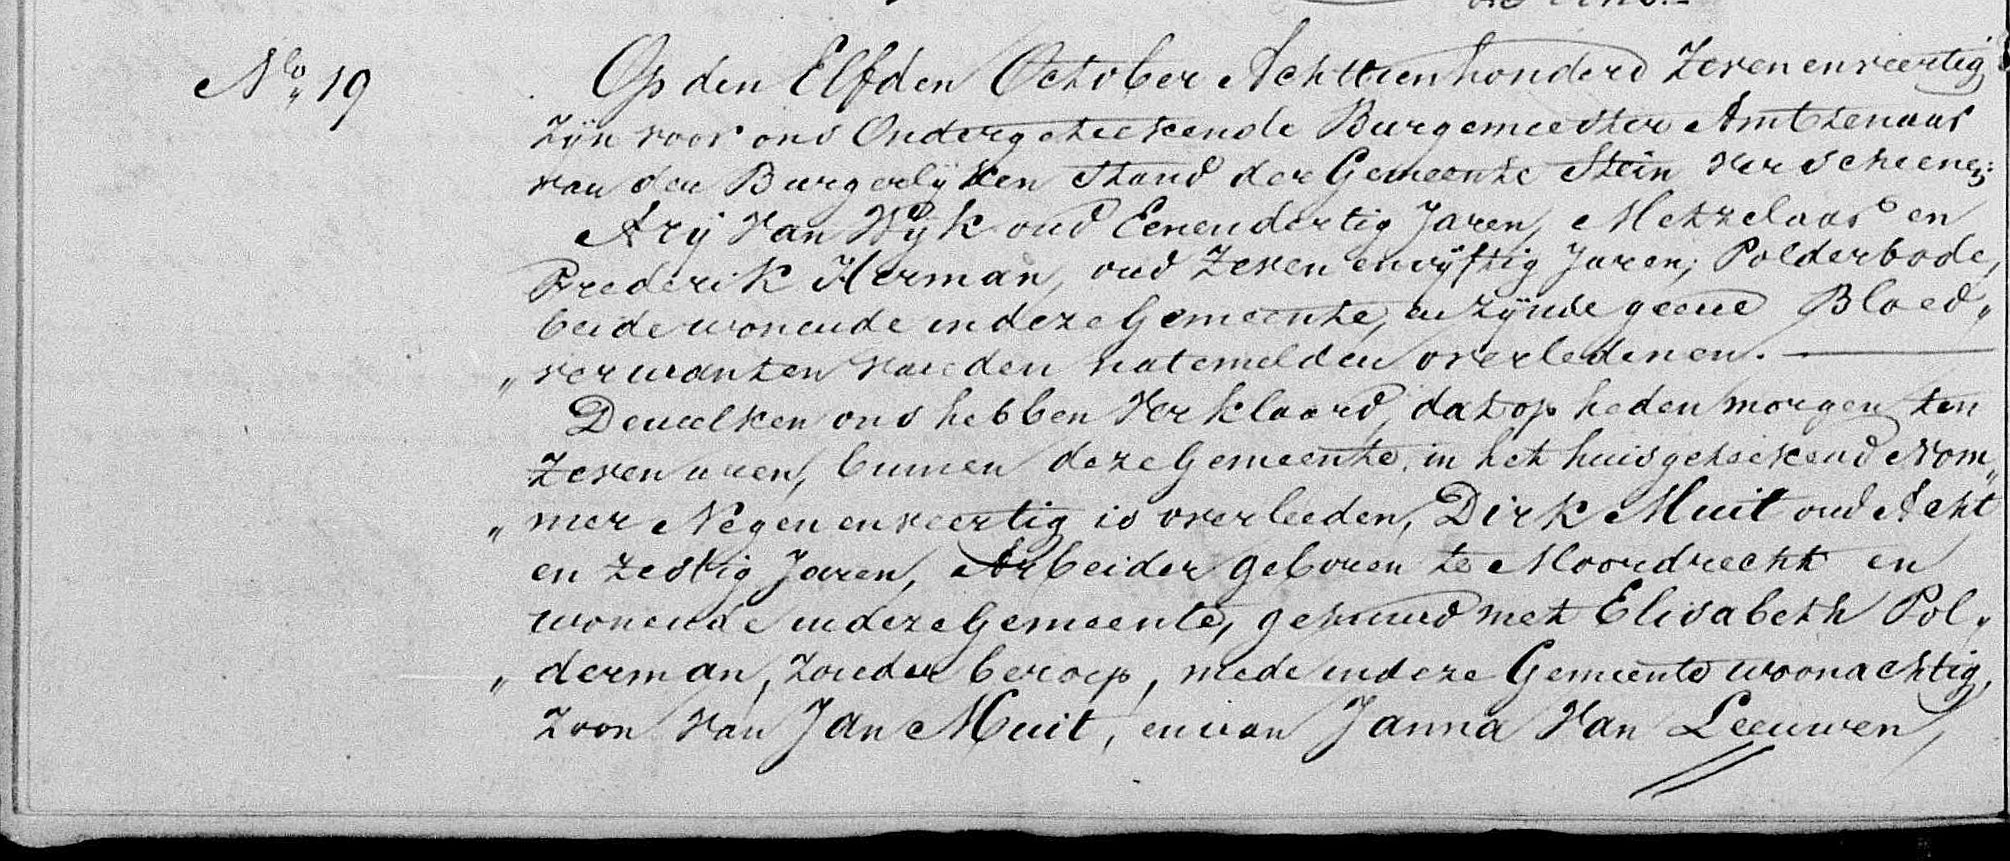 No 19
Op den Elfden October Achttienhonderd Zevenenveertig
Zijn voor ons Ondergeteekende Burgemeester Amtenaar
van den Burgerlijken Stand der Gemeente Stein verscheenen:
Arij Van Wijk oud Eenendertig Jaren, Metzelaar en
Frederik Herman, oud Zeven envijftig Jaren, Polderbode,
beide wonende indeze Gemeente, en zijnde geene Bloed„
„verwanten vanden natemelden overledenen. —
Dewelken ons hebben Verklaard, dat op heden morgen ten
Zeven uren, binnen deze Gemeente, in het huis geteekend Nom„
„mer Negenenveertig is overleeden, Dirk Muit oud Acht
en Zestig Jaren, Arbeider geboren te Moordrecht en
wonende indeze Gemeente, gehuwd met Elisabeth Pol„
„derman, zonder beroep, mede indeze Gemeente woonachtig,
Zoon van Jan Muit, en van Janna Van Leeuwen,